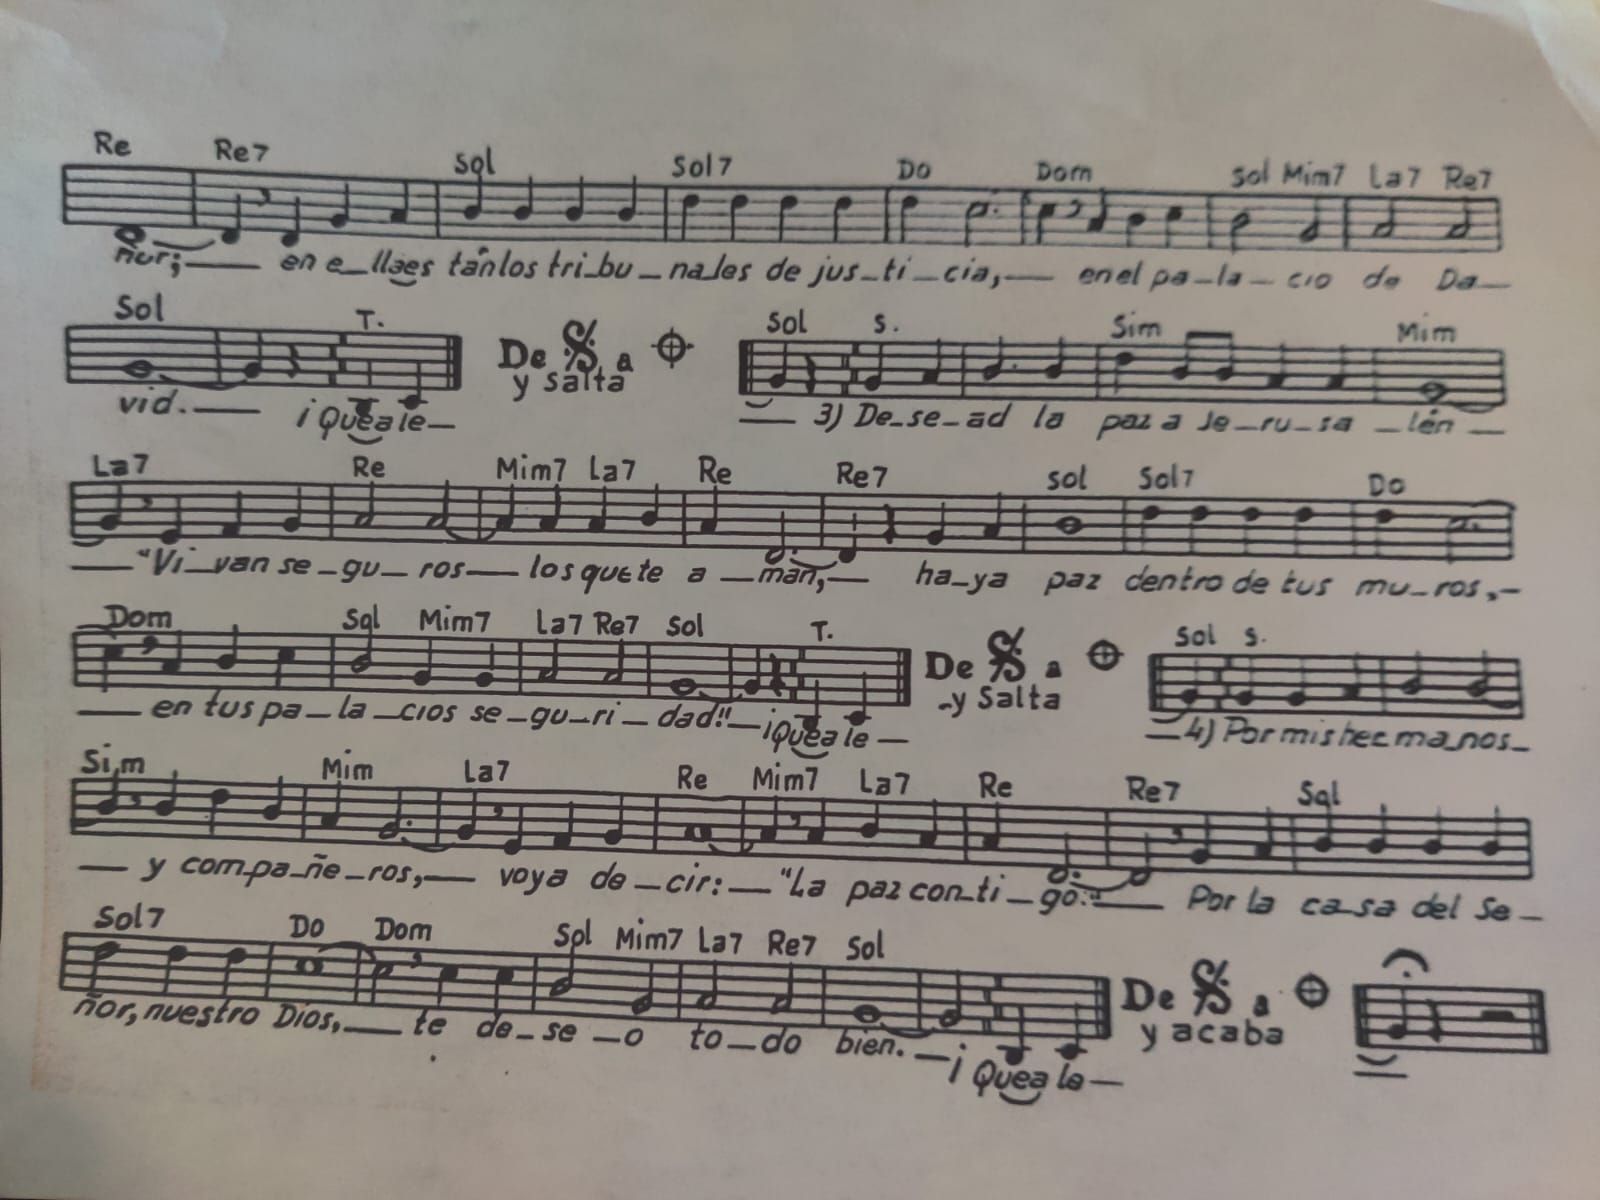 Re Re7 Sol Sol7 Do Dom Sol Mim7 La7 Re7
ñor;___ en e_llaes tán los tri_bu_na_les de jus_ti_cia,__ en el pa_la_cio de Da_
Sol T. De 𝄋 a 𝄌 Sol S. Sim Mim
y salta
vid.___ ¡Quea le_ __ 3) De_se_ad la paz a Je_ru_sa_lén_
La7 Re Mim7 La7 Re Re7 Sol Sol7 Do
__"Vi_van se_gu_ros__ los que te a_man,_ ha_ya paz dentro de tus mu_ros,_
Dom Sol Mim7 La7 Re7 Sol T. De 𝄋 a 𝄌 Sol S.
y Salta
___ en tus pa_la_cios se_gu_ri_dad!!_ ¡Quea le_ _4) Por mis her ma_nos_
Sim Mim La7 Re Mim7 La7 Re Re7 Sol
__ y com_pa_ñe_ros,__ voy a de_cir:__"La paz con_ti_go:"__ Por la ca_sa del Se_
Sol7 Do Dom Sol Mim7 La7 Re7 Sol De 𝄋 a 𝄌
y acaba
ñor, nuestro Dios,__ te de_se_o to_do bien._ ¡Quea le_